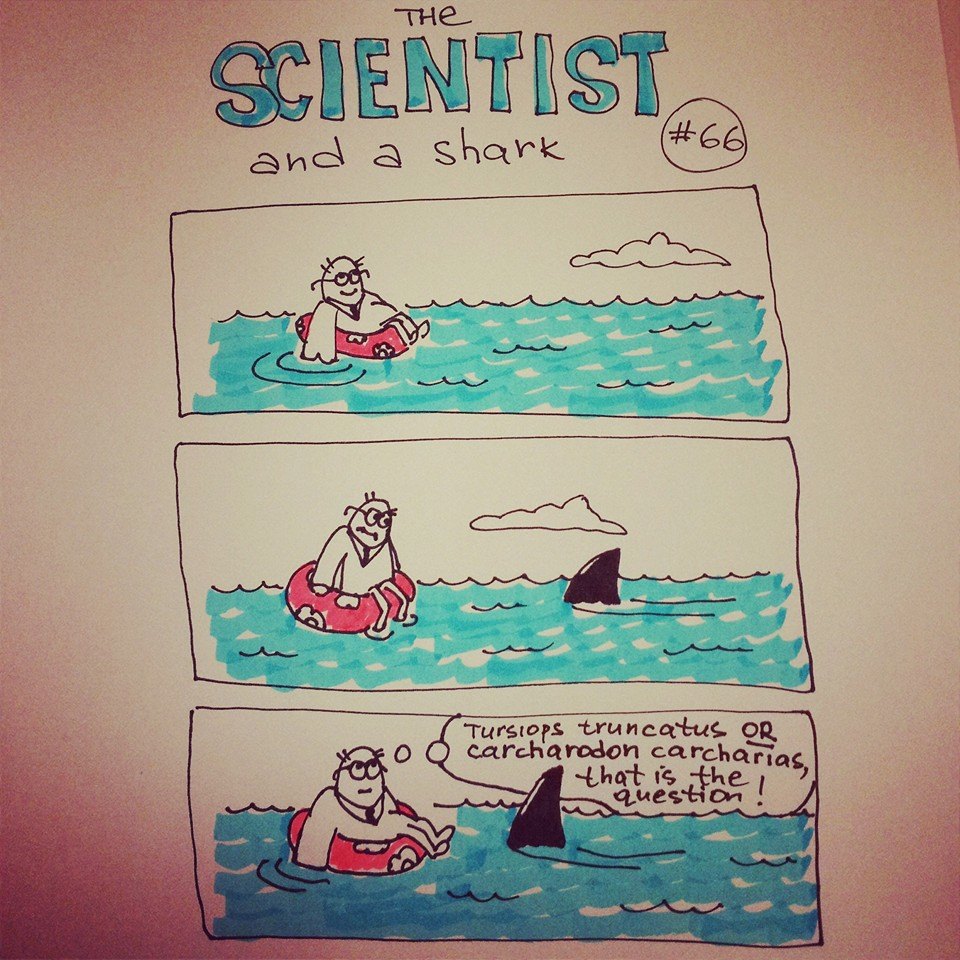 THE
SCIENTIST
and a shark
#66
Tursiops truncatus OR
carcharodon carcharias,
that is the
question!